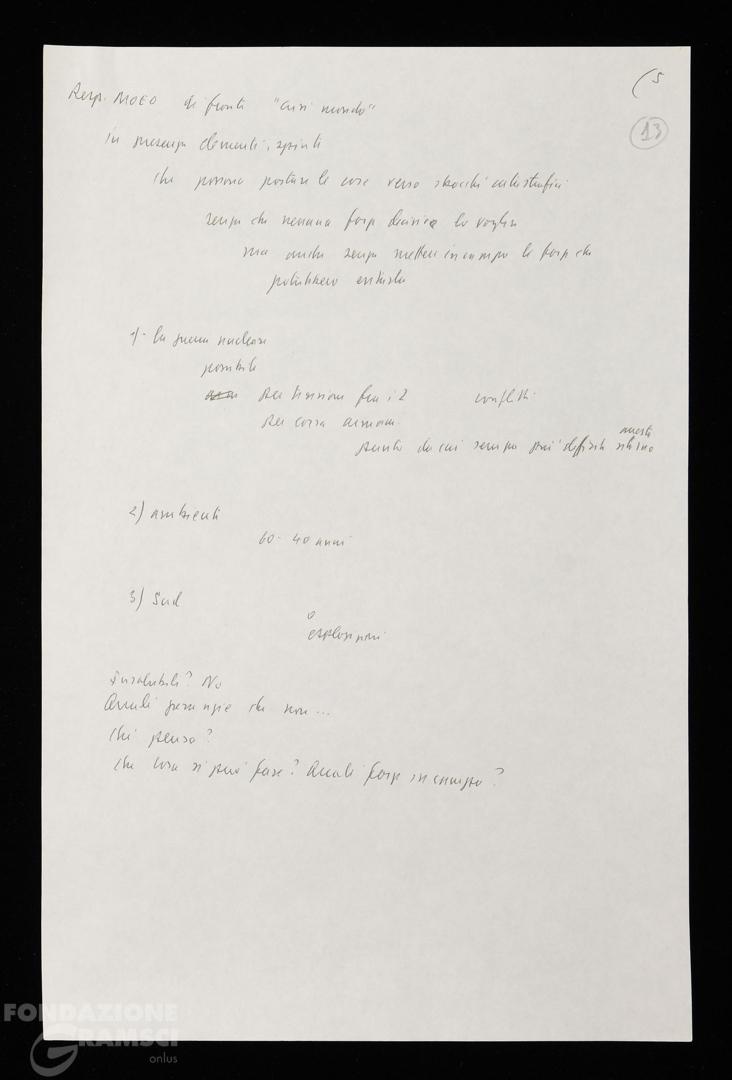 (5
13
Resp. MOEO di fronte "crisi mondo"
in presenza elementi, spinte
che possono portare le cose verso sbocchi catastrofici
senza che nessuna forza decisiva lo voglia
ma anche senza mettere in campo le forze che
potrebbero evitarlo
1)- la guerra nucleare
possibile
Per tensione fra i 2 conflitti
Per corsa armam.
punto da cui sempre più difficile
2) ambiente
60- 40 anni
3) Sud
o
esplosioni
Insolubili? No
Quali garanzie che non...
Chi pensa?
Che cosa si può fare? Quali forze in campo?
FONDAZIONE
GRAMSCI
onlus